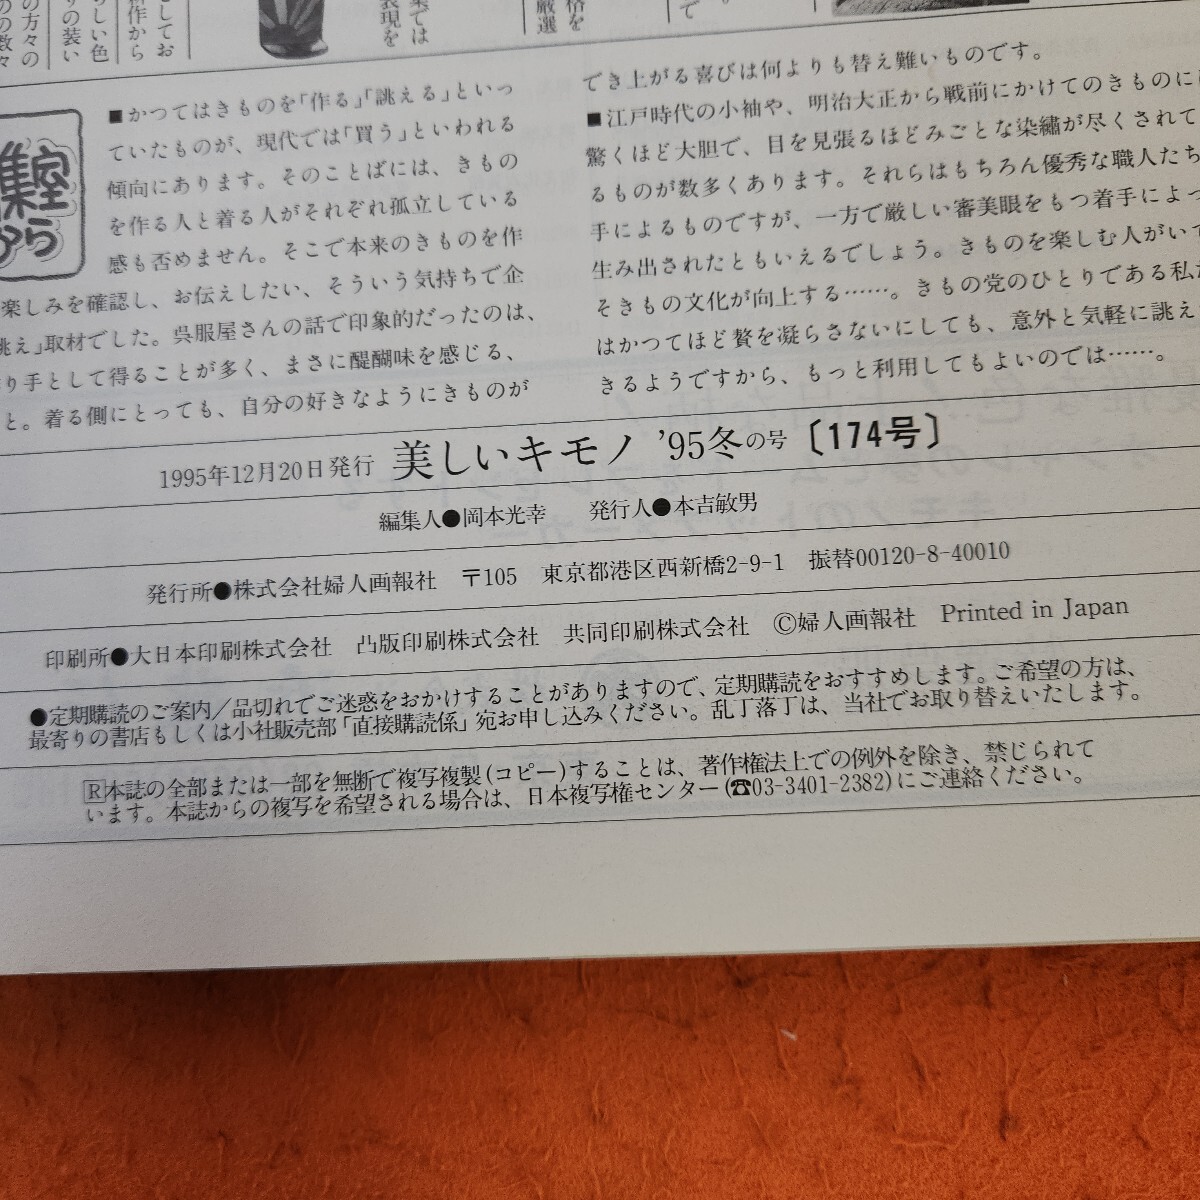 してお
新作から
らしい色
りの装い
の方々の
のの数々
集では
表現を
格を
厳選
で
集室
から
■かつてはきものを「作る」「誂える」といっ
ていたものが、現代では「買う」といわれる
傾向にあります。そのことばには、きもの
を作る人と着る人がそれぞれ孤立している
感も否めません。そこで本来のきものを作
楽しみを確認し、お伝えしたい、そういう気持ちで企
誂え」取材でした。呉服屋さんの話で印象的だったのは、
り手として得ることが多く、まさに醍醐味を感じる、
と。着る側にとっても、自分の好きなようにきものが
でき上がる喜びは何よりも替え難いものです。
■江戸時代の小袖や、明治大正から戦前にかけてのきものに
驚くほど大胆で、目を見張るほどみごとな染繍が尽くされて
るものが数多くあります。それらはもちろん優秀な職人たち
手によるものですが、一方で厳しい審美眼をもつ着手によっ
生み出されたともいえるでしょう。きものを楽しむ人がいて
そきもの文化が向上する……。きもの党のひとりである私が
はかつてほど贅を凝らさないにしても、意外と気軽に誂え
きるようですから、もっと利用してもよいのでは……。
1995年12月20日発行 美しいキモノ ’95冬の号〔174号〕
編集人●岡本光幸 発行人●本吉敏男
発行所●株式会社婦人画報社 〒105 東京都港区西新橋2-9-1 振替00120-8-40010
印刷所●大日本印刷株式会社 凸版印刷株式会社 共同印刷株式会社 ©婦人画報社 Printed in Japan
●定期購読のご案内／品切れでご迷惑をおかけすることがありますので、定期購読をおすすめします。ご希望の方は、
最寄りの書店もしくは小社販売部「直接購読係」宛お申し込みください。乱丁落丁は、当社でお取り替えいたします。
R本誌の全部または一部を無断で複写複製(コピー)することは、著作権法上での例外を除き、禁じられて
います。本誌からの複写を希望される場合は、日本複写権センター(☎03-3401-2382)にご連絡ください。